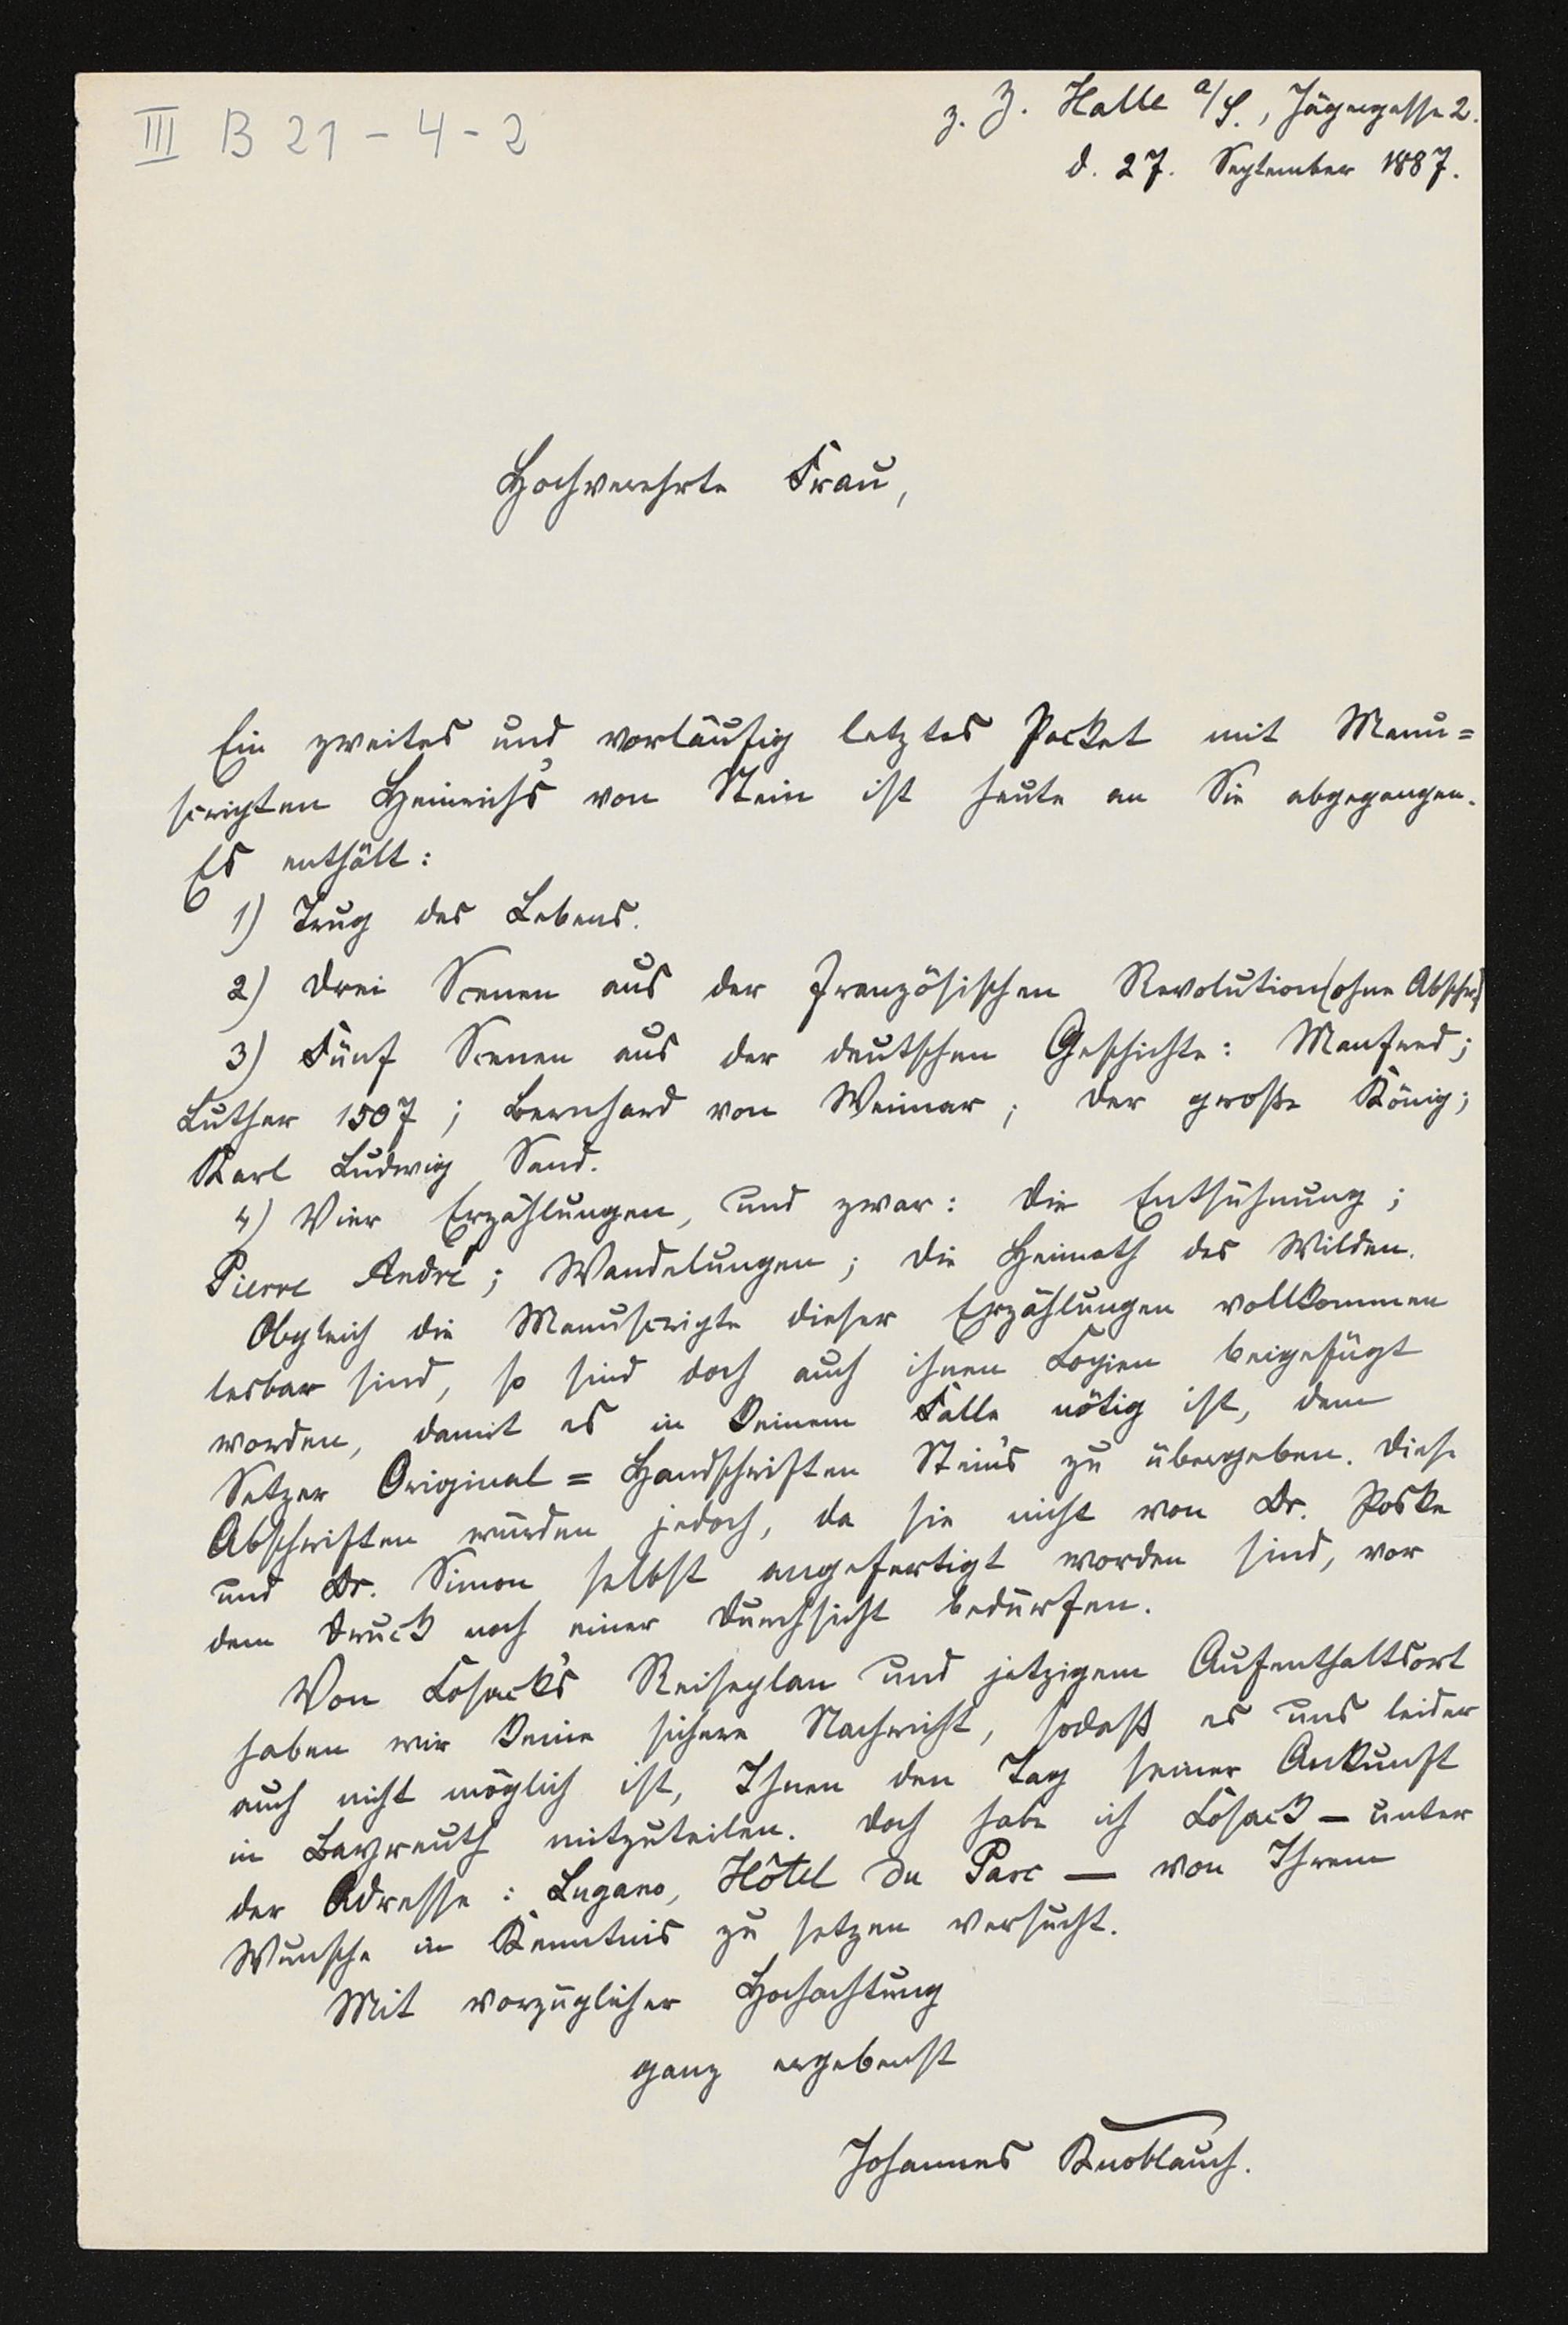 III B 21 - 4 - 2
z. Z. Halle a/S., Jägergasse 2.
d. 27. September 1887.
Hochverehrte Frau,
Ein zweites und vorläufig letztes Packet mit Manu=
scripten Heinrich's von Stein ist heute an Sie abgegangen.
Es enthält:
1) Trug des Lebens.
2) Drei Scenen aus der französischen Revolution (ohne Abschr.)
3) Fünf Scenen aus der deutschen Geschichte: Manfred;
Luther 1507; Bernhard von Weimar; der große König;
Karl Ludwig Sand.
4) Vier Erzählungen, und zwar: die Entsühnung;
Pierre André; Wandelungen; die Heimath des Wilden.
Obgleich die Manuscripte dieser Erzählungen vollkommen
lesbar sind, so sind doch auch ihnen Copien beigefügt
worden, damit es in keinem Falle nötig ist, dem
Setzer Original=Handschriften Stein's zu übergeben. Diese
Abschriften würden jedoch, da sie nicht von Dr. Poske
und Dr. Simon selbst angefertigt worden sind, vor
dem Druck noch einer Durchsicht bedürfen.
Von Cosack's Reiseplan und jetzigem Aufenthaltsort
haben wir keine sichere Nachricht, sodaß es uns leider
auch nicht möglich ist, Ihnen den Tag seiner Ankunft
in Bayreuth mitzuteilen. Doch habe ich Cosack — unter
der Adresse: Lugano, Hôtel du Parc — von Ihrem
Wunsche in Kenntnis zu setzen versucht.
Mit vorzüglicher Hochachtung
ganz ergebenst
Johannes Knoblauch.